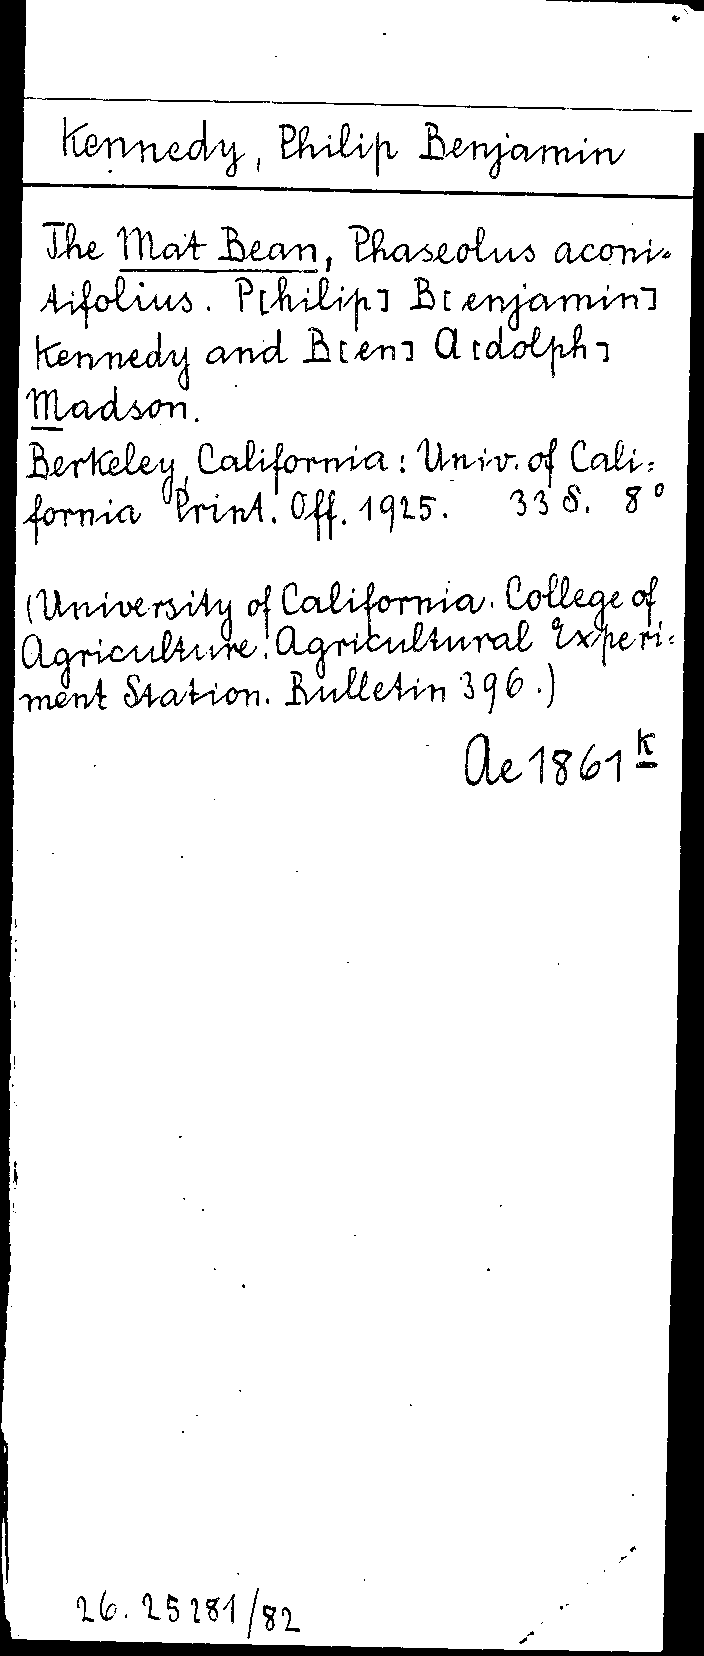 Kennedy, Philip Benjamin
The Mat Bean, Phaseolus aconi=
tifolius. P[hilip] B[enjamin]
Kennedy and B[en] A[dolph]
Madson.
Berkeley, California: Univ. of Cali=
fornia Print. Off. 1925. 33 S. 8°
(University of California. College of
Agriculture. Agricultural Experi=
ment Station. Bulletin 396.)
Ae 1861 k
26. 25281/82